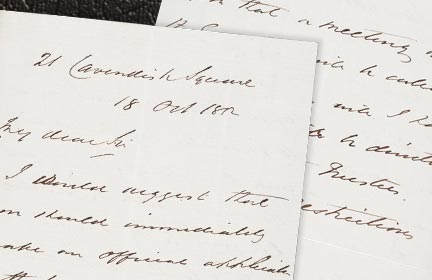 21 Cavendish Square
18 Oct 18
My dear Sir
I would suggest that
should immediately
an official applica
that a meeting
will be
will I
be
Trustees.
restrictions